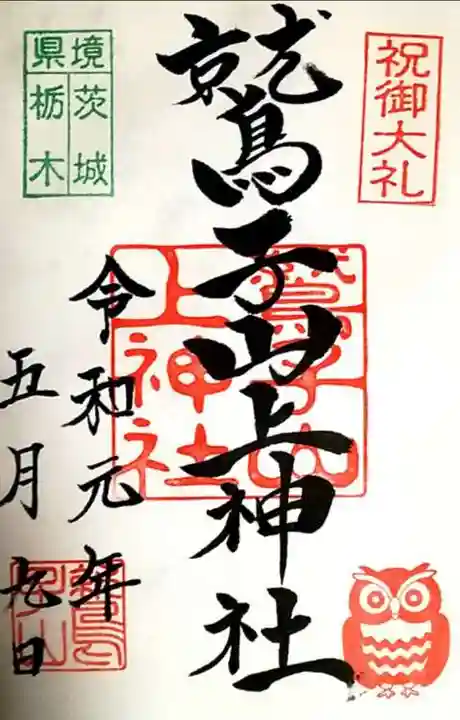 祝御大礼
鷲子山上神社
鷲子山
上神社
茨城
栃木
県境
令和元年
五月九日
鷲子山